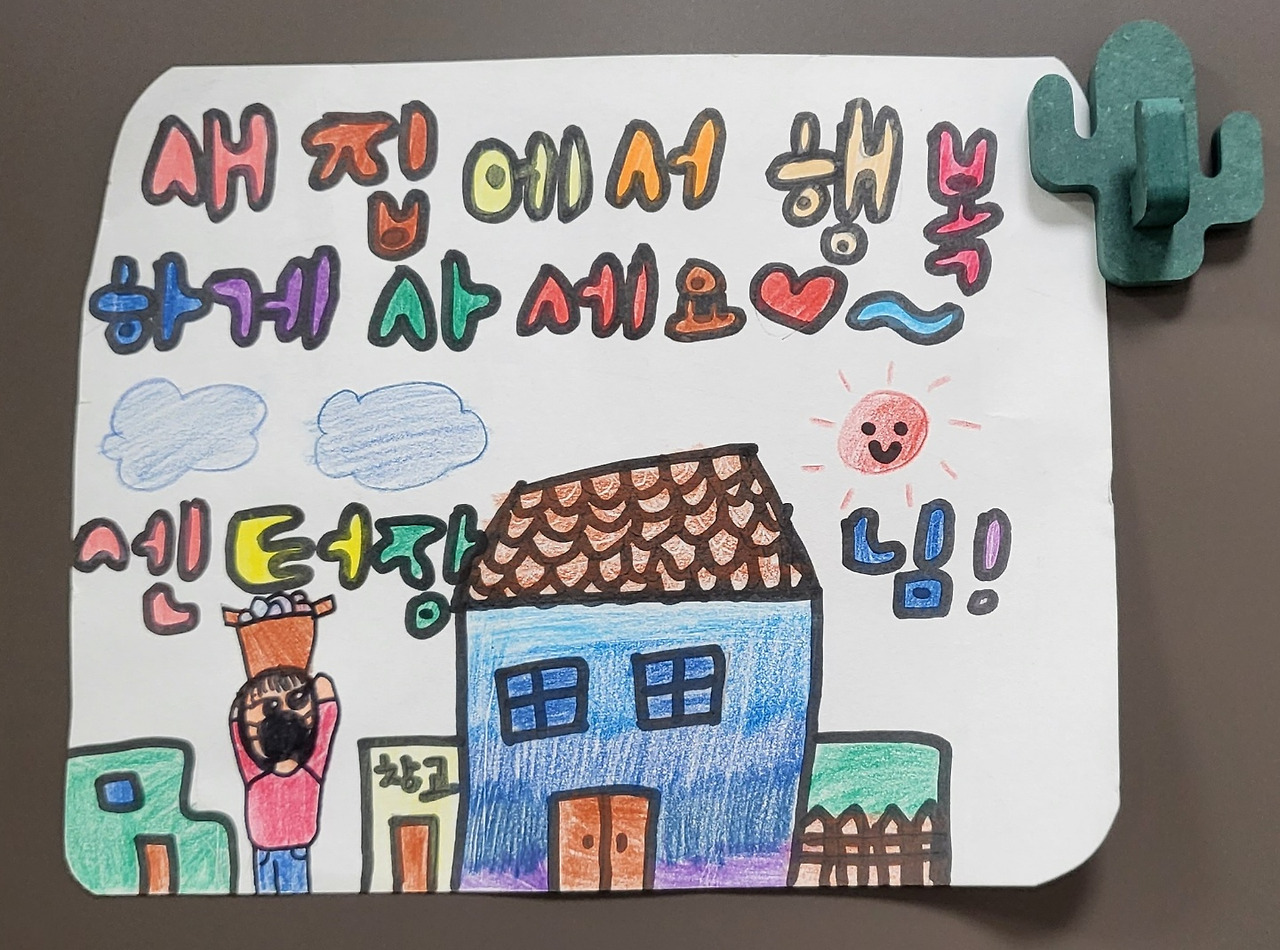 새집에서 행복
하게 사세요♥~
센터장님!
창고